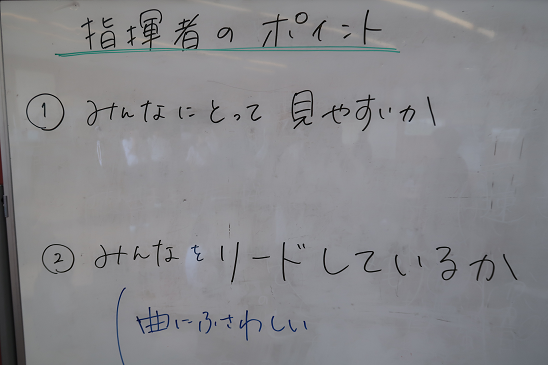 指揮者のポイント
① みんなにとって 見やすいか
② みんなを リードしているか
曲にふさわしい